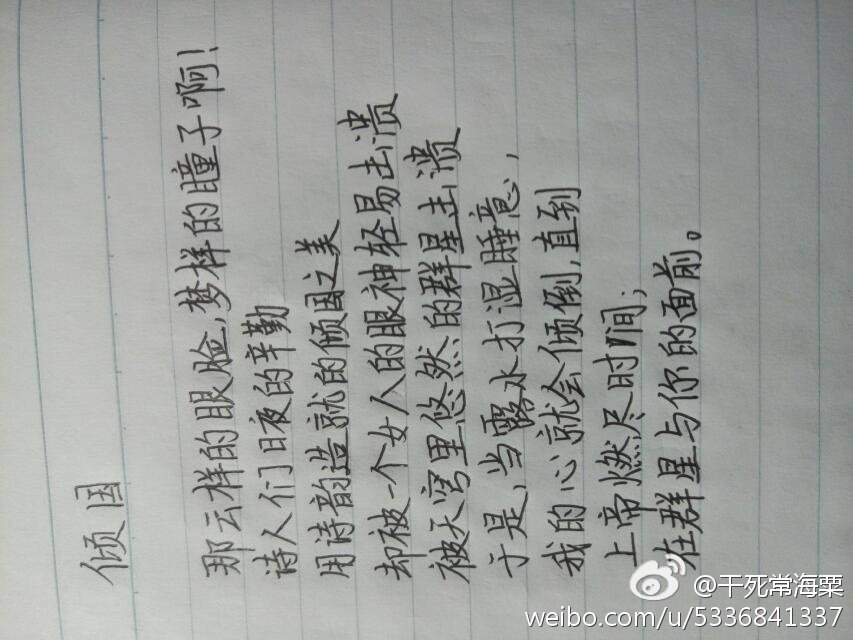 倾国
那云样的眼脸,梦样的瞳子啊!
诗人们日夜的辛勤
用诗韵造就的倾国之美
却被一个女人的眼神轻易击溃
被天穹里悠然的群星击溃
于是,当露水打湿睡意,
我的心就会倾倒,直到
上帝燃尽时间;
在群星与你的面前。
@干死常海粟
weibo.com/u/5336841337